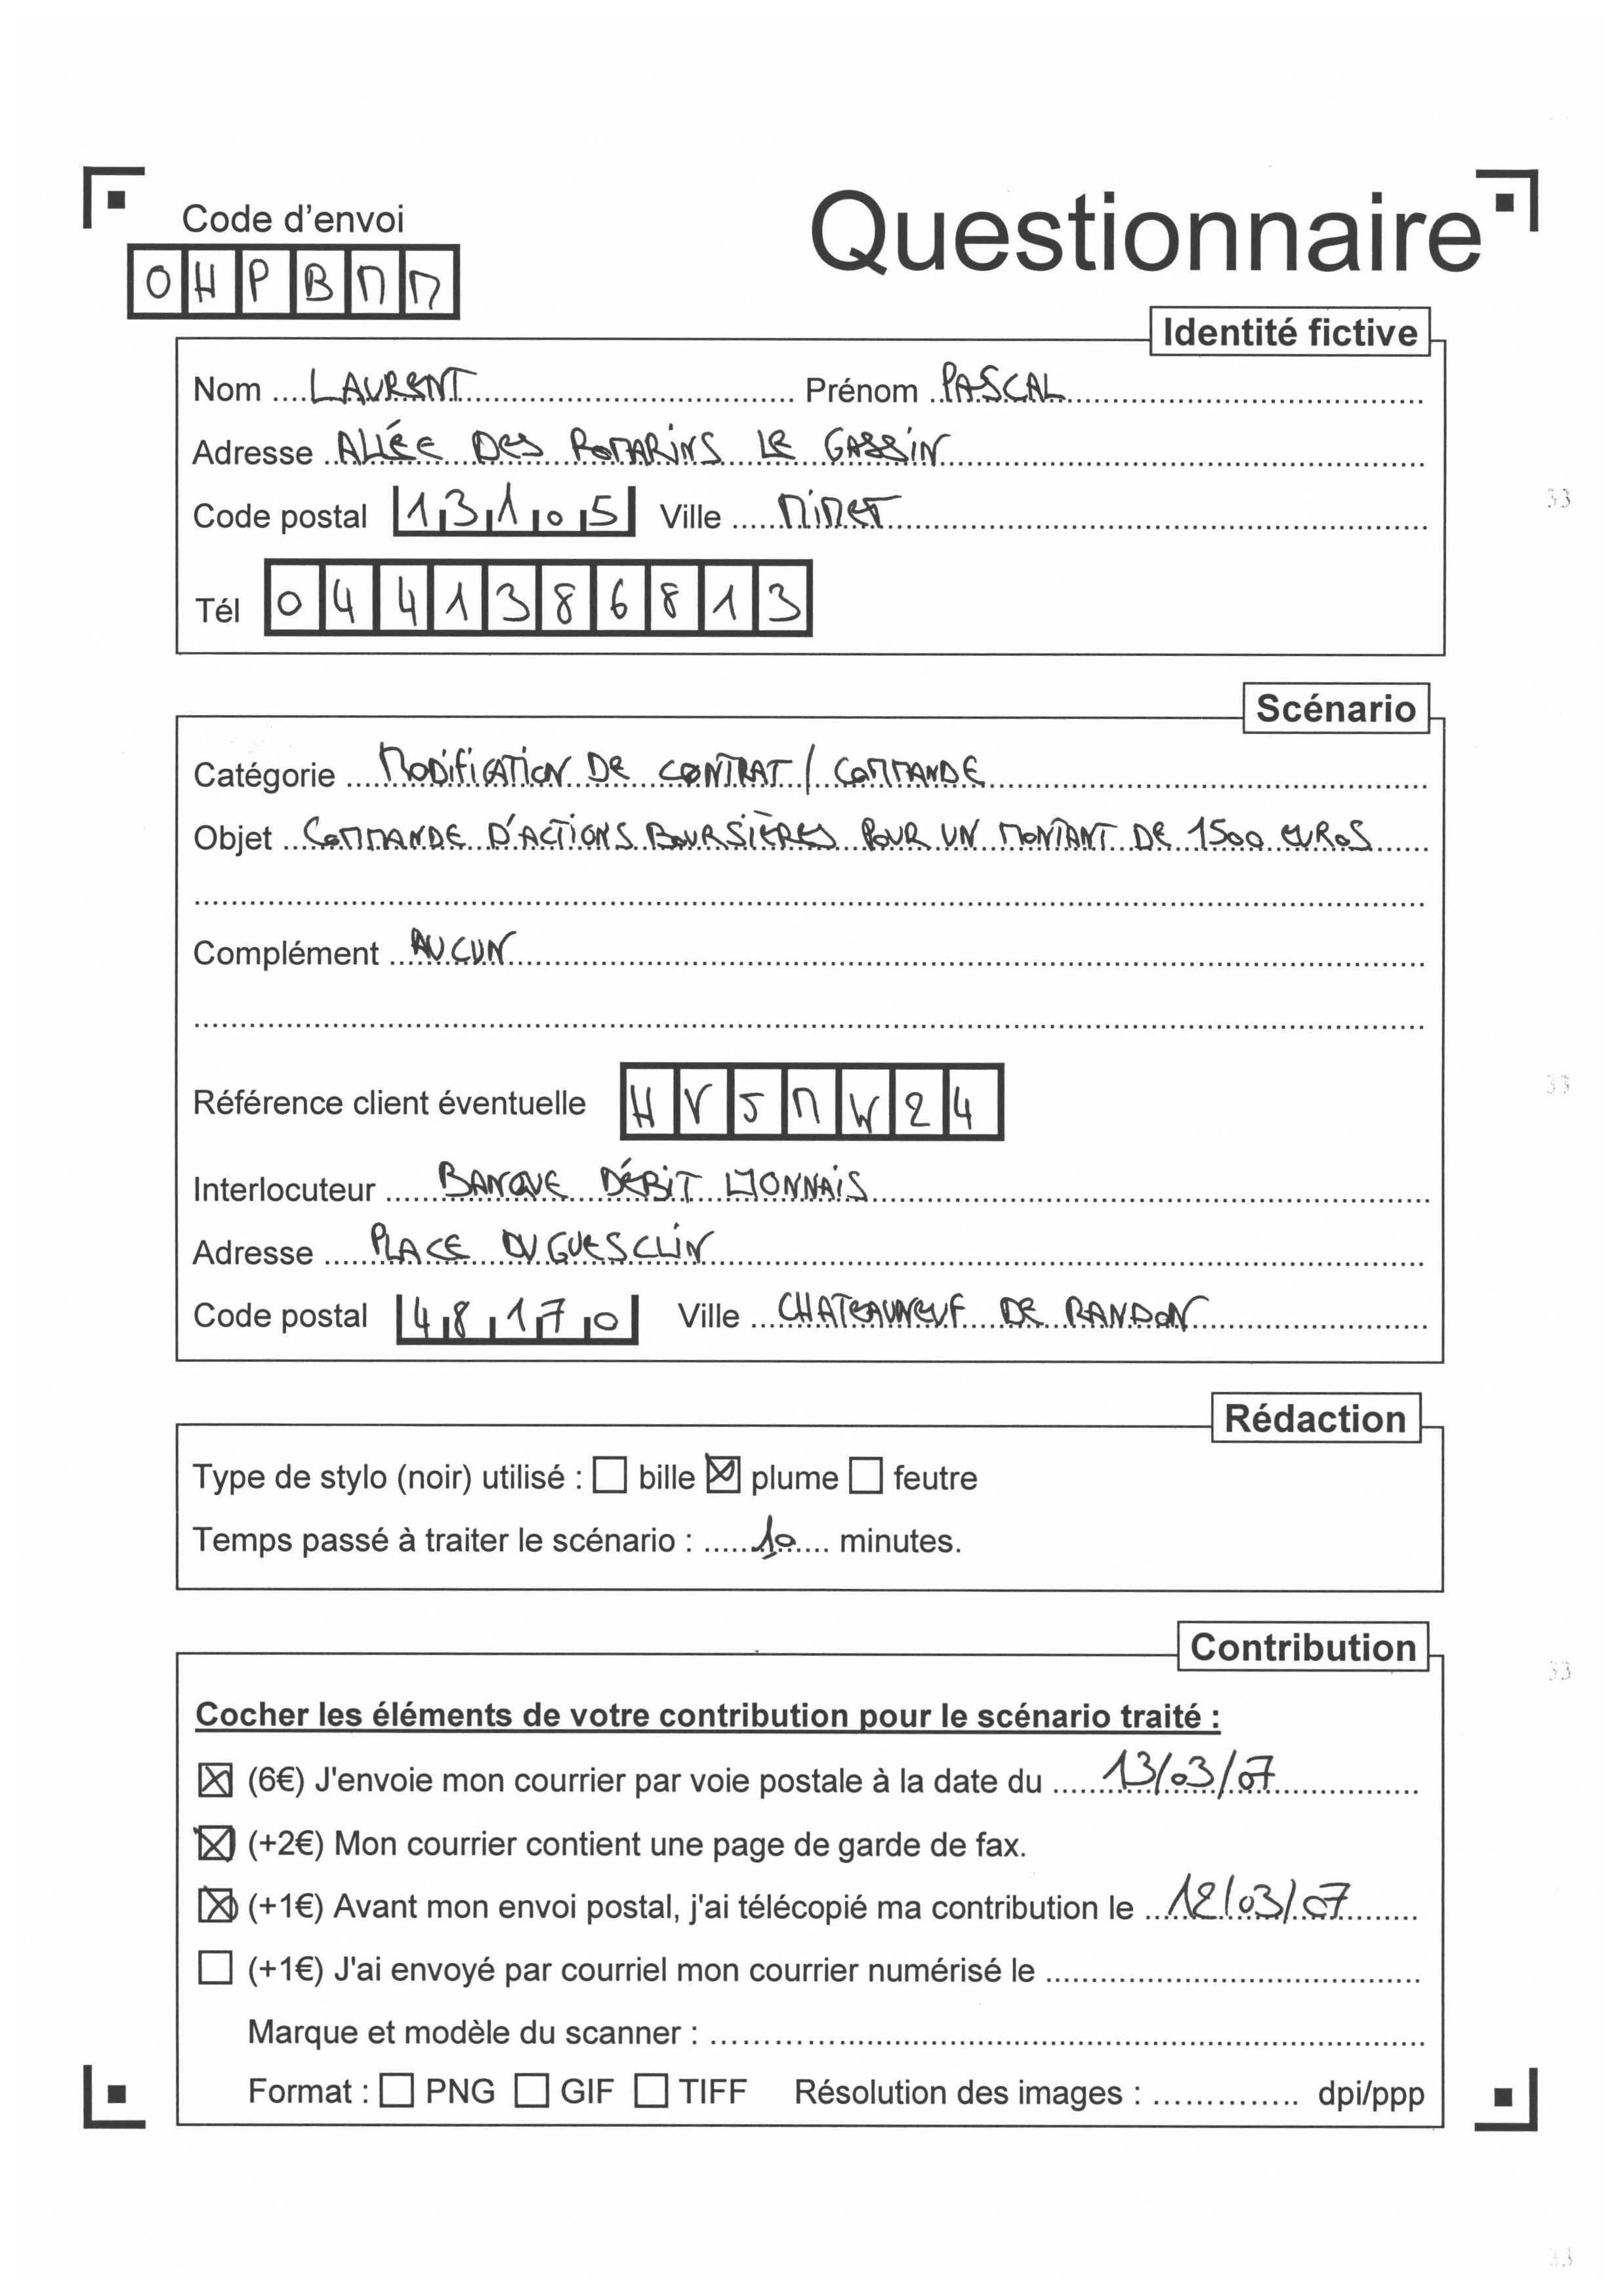 Code d'envoi
Questionnaire
OHPBMM
Identité fictive
Nom .... LAURENT Prénom .. PASCAL
Adresse .. ALLÉE DES ROMARINS LE GASSIN
Code postal 13105 Ville ..... MIMET
Tél 0441386813
Scénario
Catégorie .... MODIFICATION DE CONTRAT / COMMANDE
Objet .. COMMANDE D'ACTIONS BOURSIÈRES POUR UN MONTANT DE 1500 EUROS
Complément .. AUCUN
Référence client éventuelle HV5MW24
Interlocuteur .... BANQUE DÉBIT LYONNAIS
Adresse .... PLACE DUGUESCLIN
Code postal 48170 Ville .. CHATEAUNEUF DE RANDON
Rédaction
Type de stylo (noir) utilisé : ☐ bille ☒ plume ☐ feutre
Temps passé à traiter le scénario : ..... 10 .... minutes.
Contribution
Cocher les éléments de votre contribution pour le scénario traité :
☒ (6€) J'envoie mon courrier par voie postale à la date du .... 13/03/07
☒ (+2€) Mon courrier contient une page de garde de fax.
☒ (+1€) Avant mon envoi postal, j'ai télécopié ma contribution le .. 12/03/07
☐ (+1€) J'ai envoyé par courriel mon courrier numérisé le ....
Marque et modèle du scanner : ....
Format : ☐ PNG ☐ GIF ☐ TIFF Résolution des images : .............. dpi/ppp
33
33
33
33